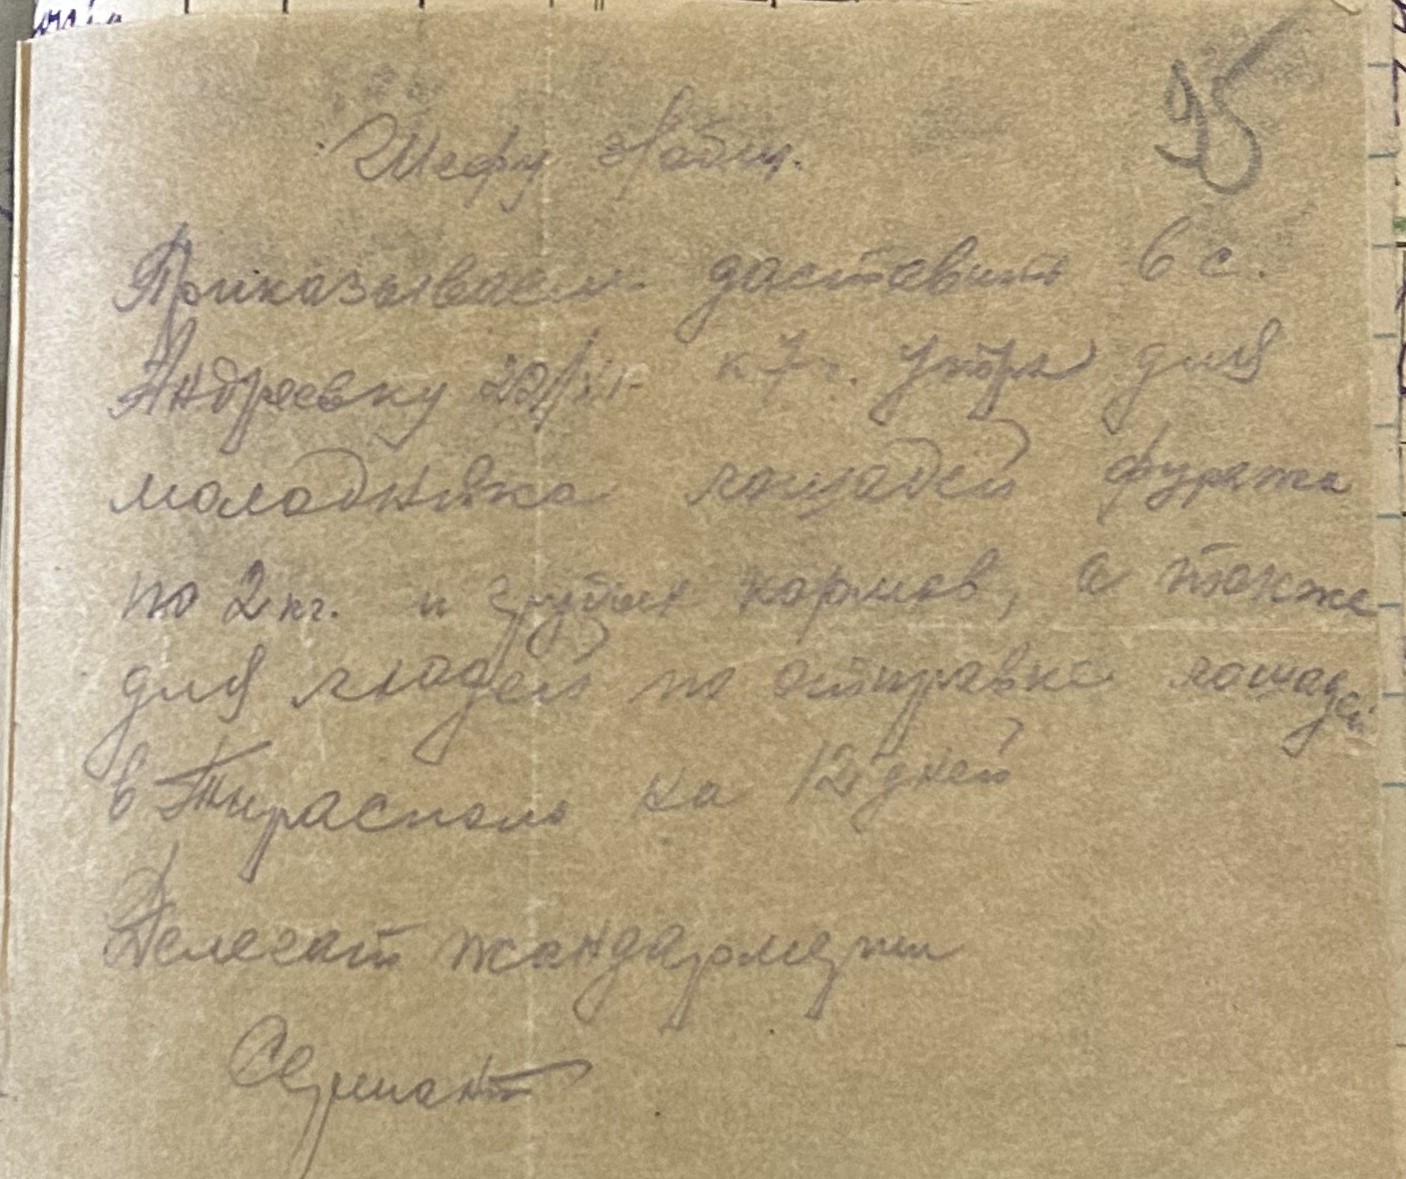 95
Шефу общ.
Приказываем доставить в с.
Андреевку к 7 ч. утра для
молодняка лошадей фуража
по 2 кг. и грубых кормов, а также
для людей по отправке лошадей
в Тирасполь на 12 дней
Делегат жандармерии
Сержант